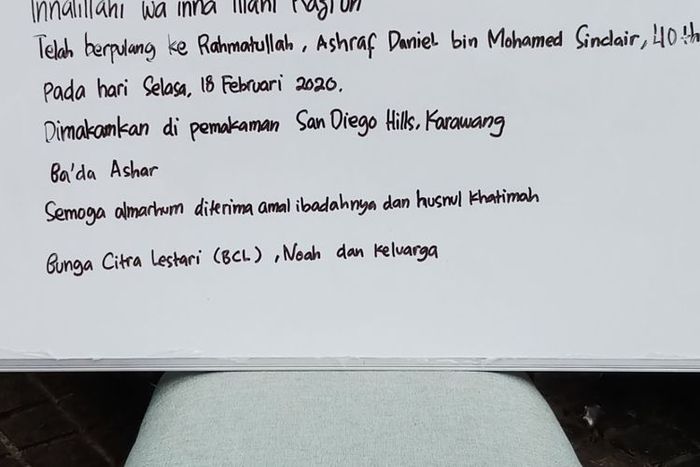 Innalillahi wa inna illahi Ragiun
Telah berpulang ke Rahmatullah, Ashraf Daniel bin Mohamed Sinclair, 40 th
Pada hari Selasa, 18 Februari 2020.
Dimakamkan di pemakaman San Diego Hills, Karawang
Ba'da Ashar
Semoga almarhum diterima amal ibadahnya dan husnul khatimah
Bunga Citra Lestari (BCL), Noah dan keluarga